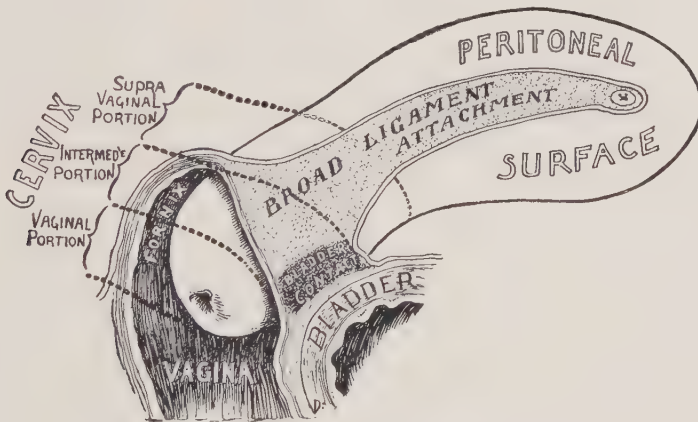 PERITONEAL
SURFACE
BROAD LIGAMENT
ATTACHMENT
CERVIX
SUPRA
VAGINAL
PORTION
INTERMED'E
PORTION
VAGINAL
PORTION
FORNIX
BLADDER
CONTACT
BLADDER
VAGINA
D.